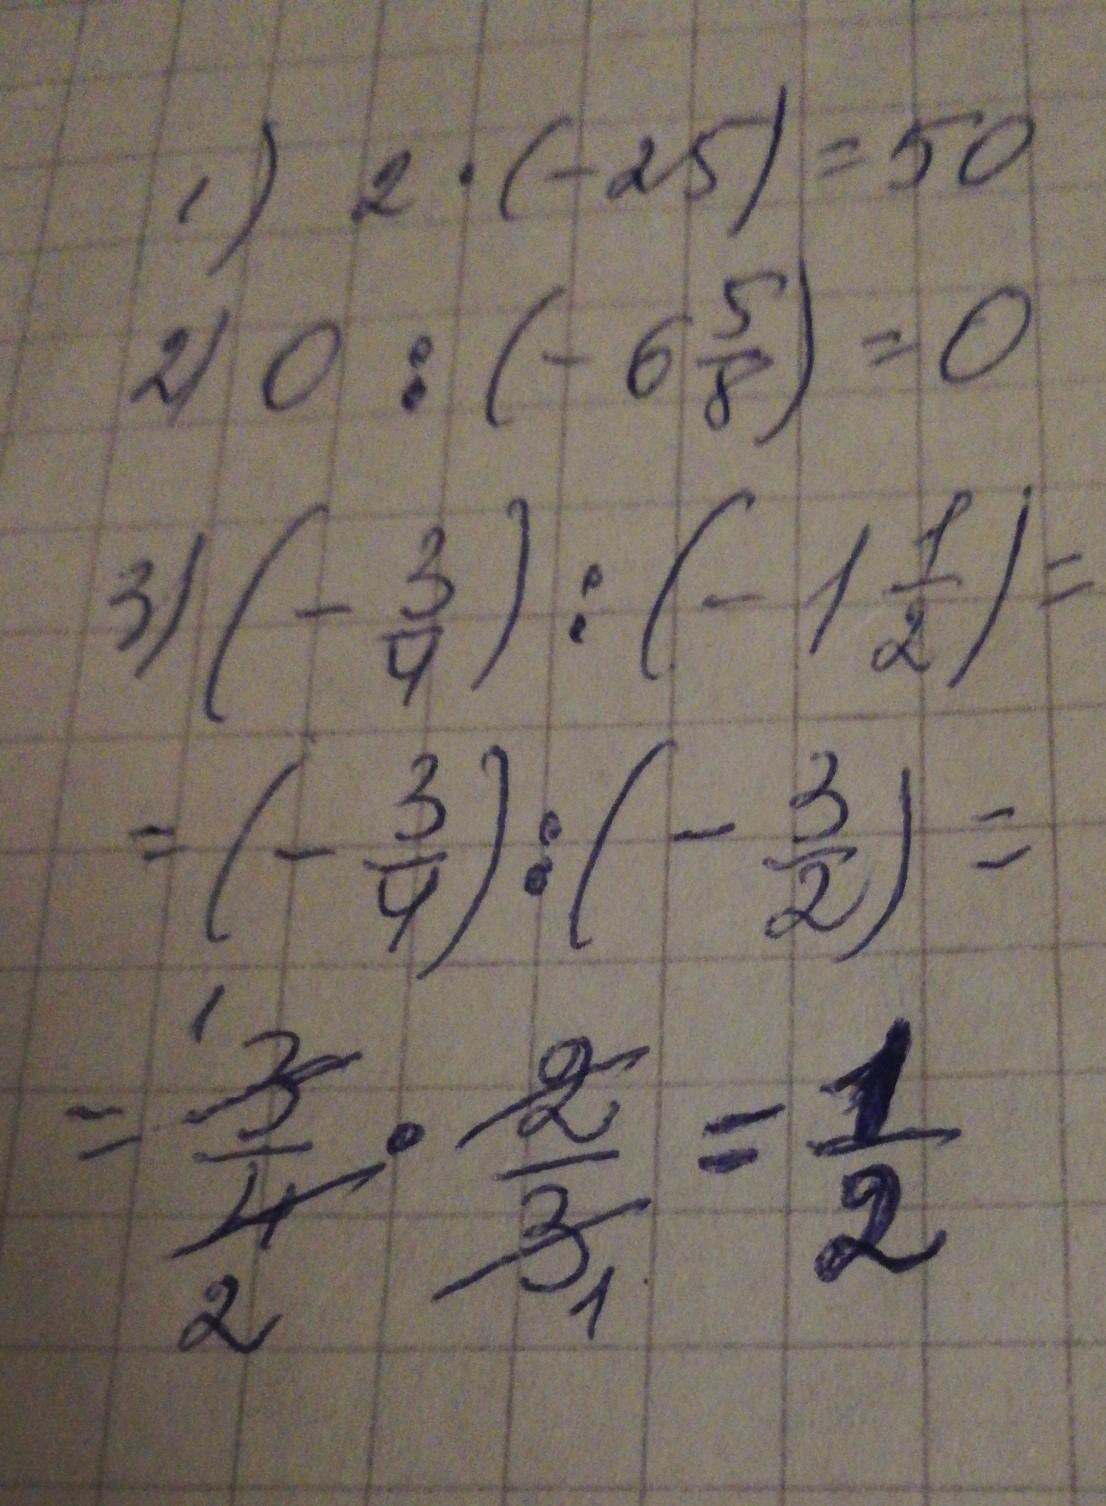 1) 2 · (-25) = 50
2) 0 : (-6 5/8) = 0
3) (- 3/4) : (- 1 1/2) =
= (- 3/4) : (- 3/2) =
1
= 3/4 · 2/3 = 1/2
2 1